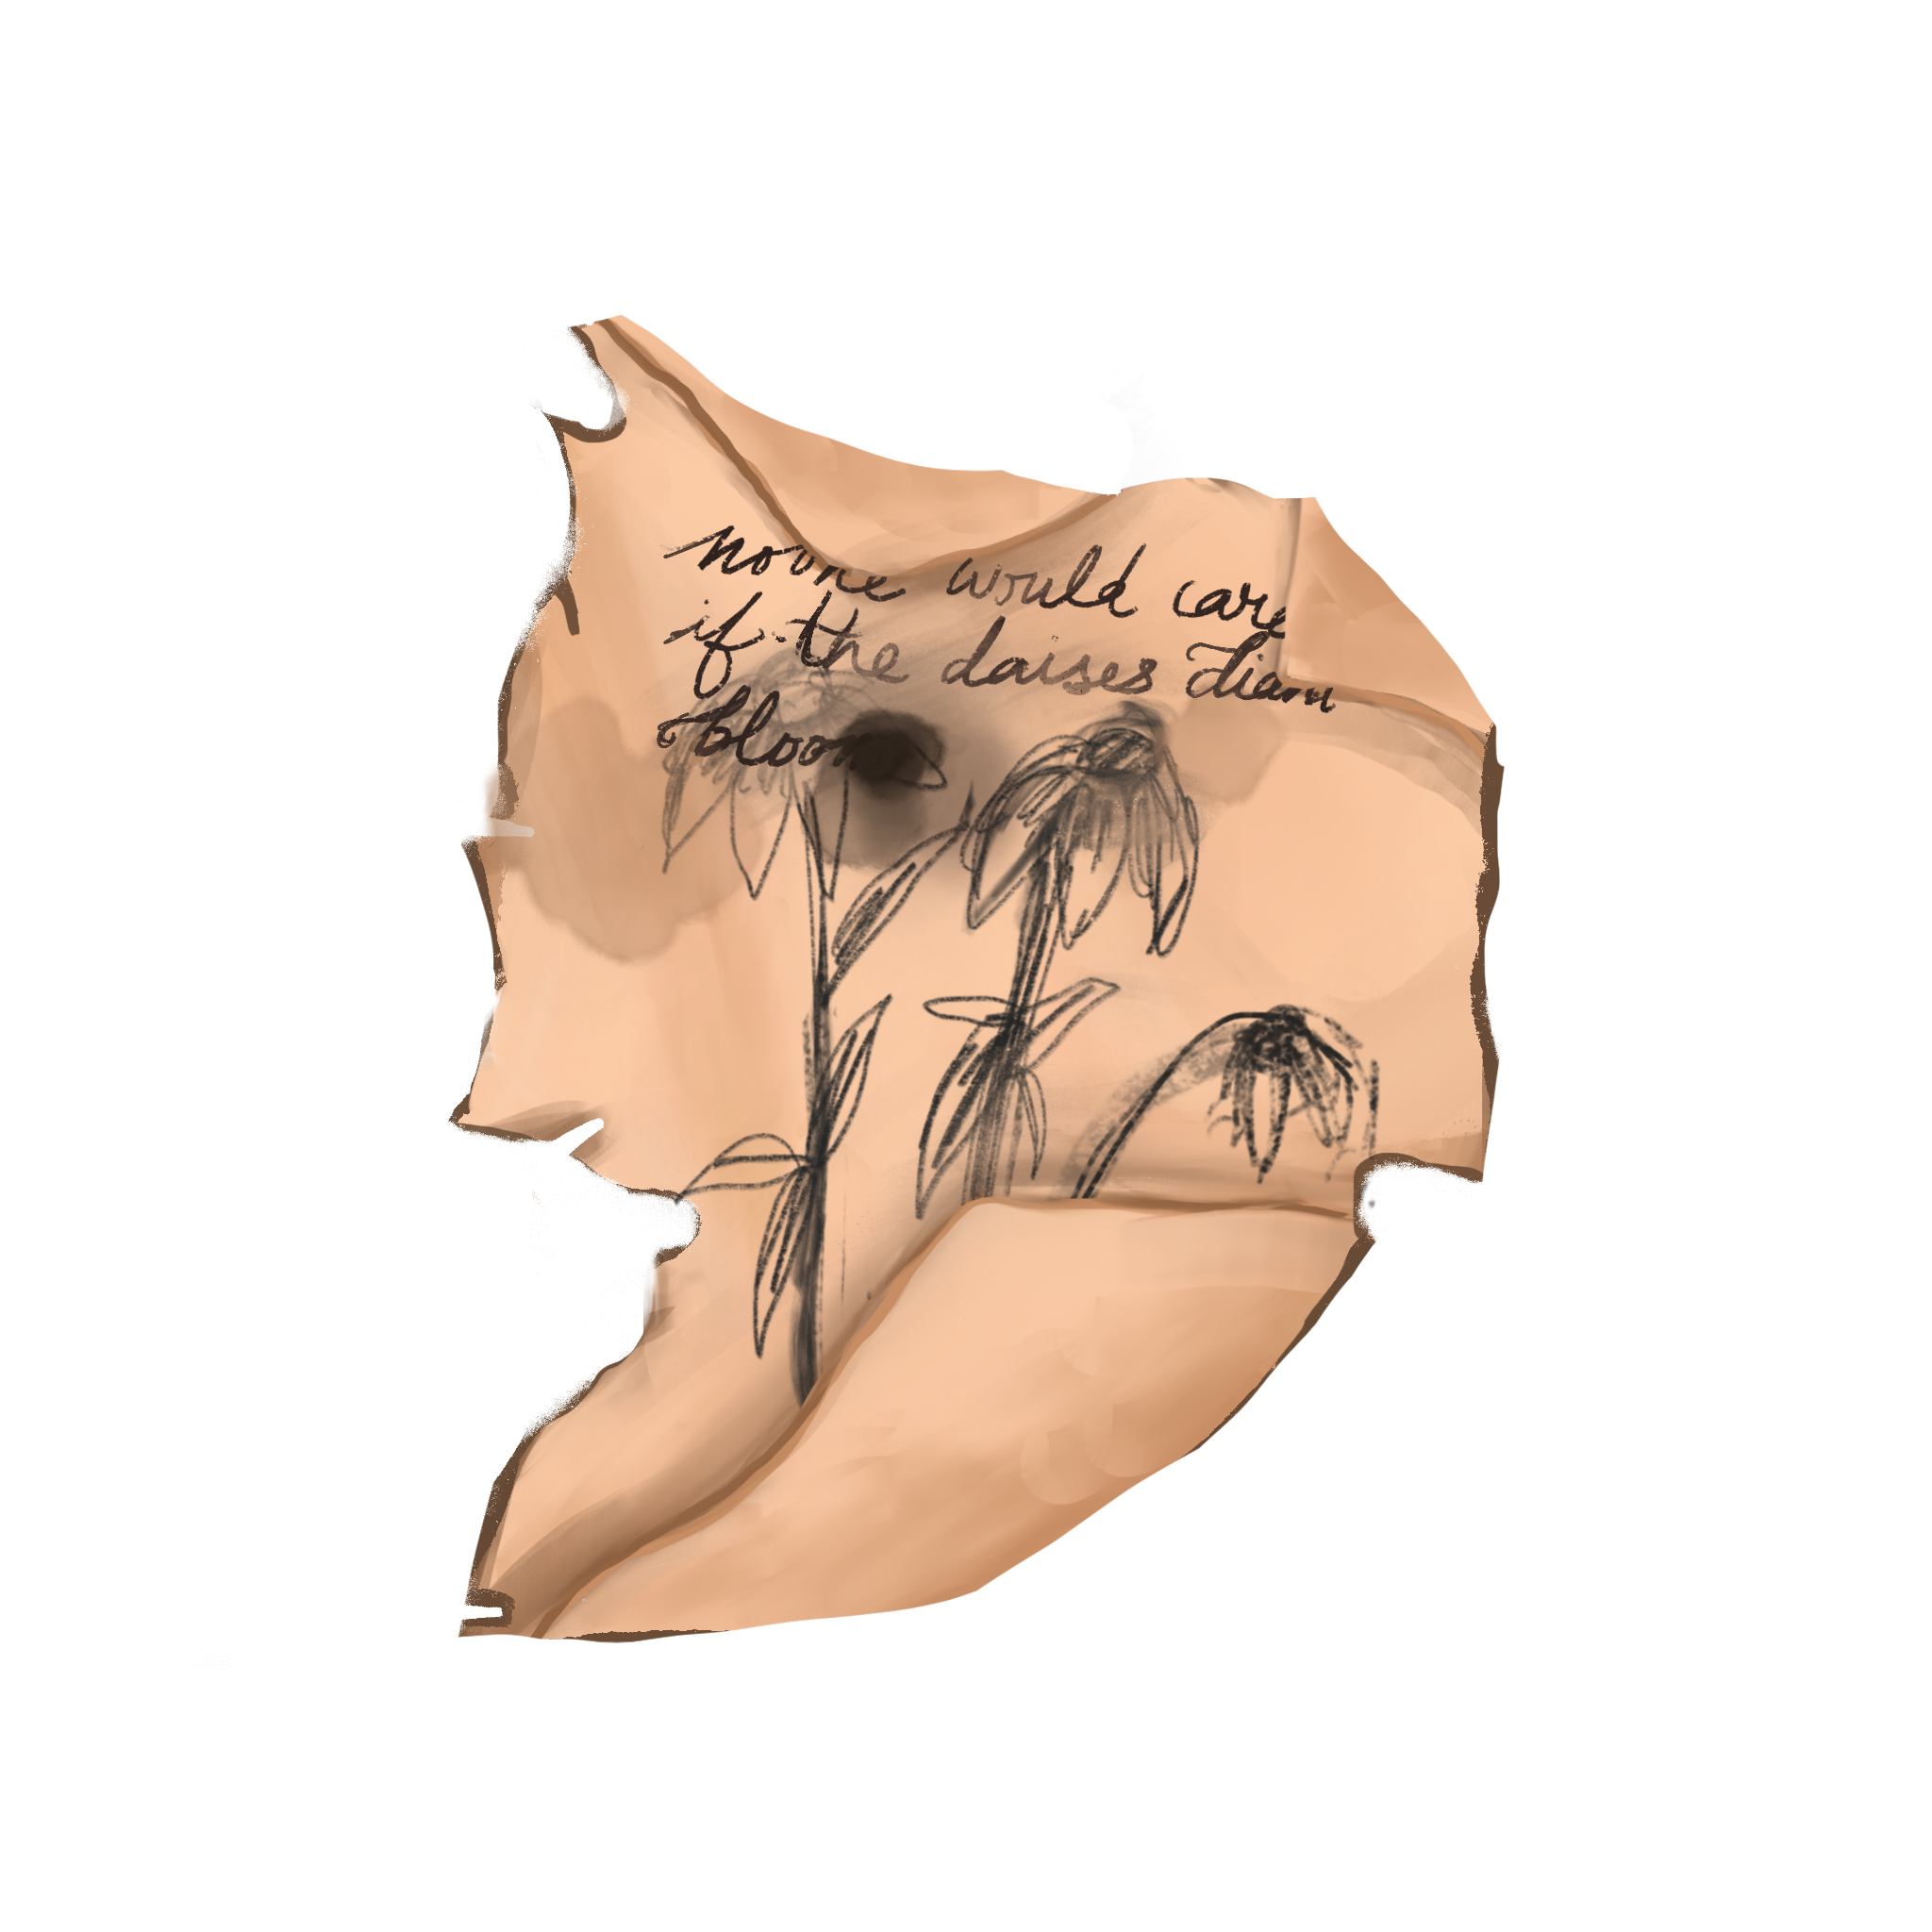 noone would care
if the daises
bloom